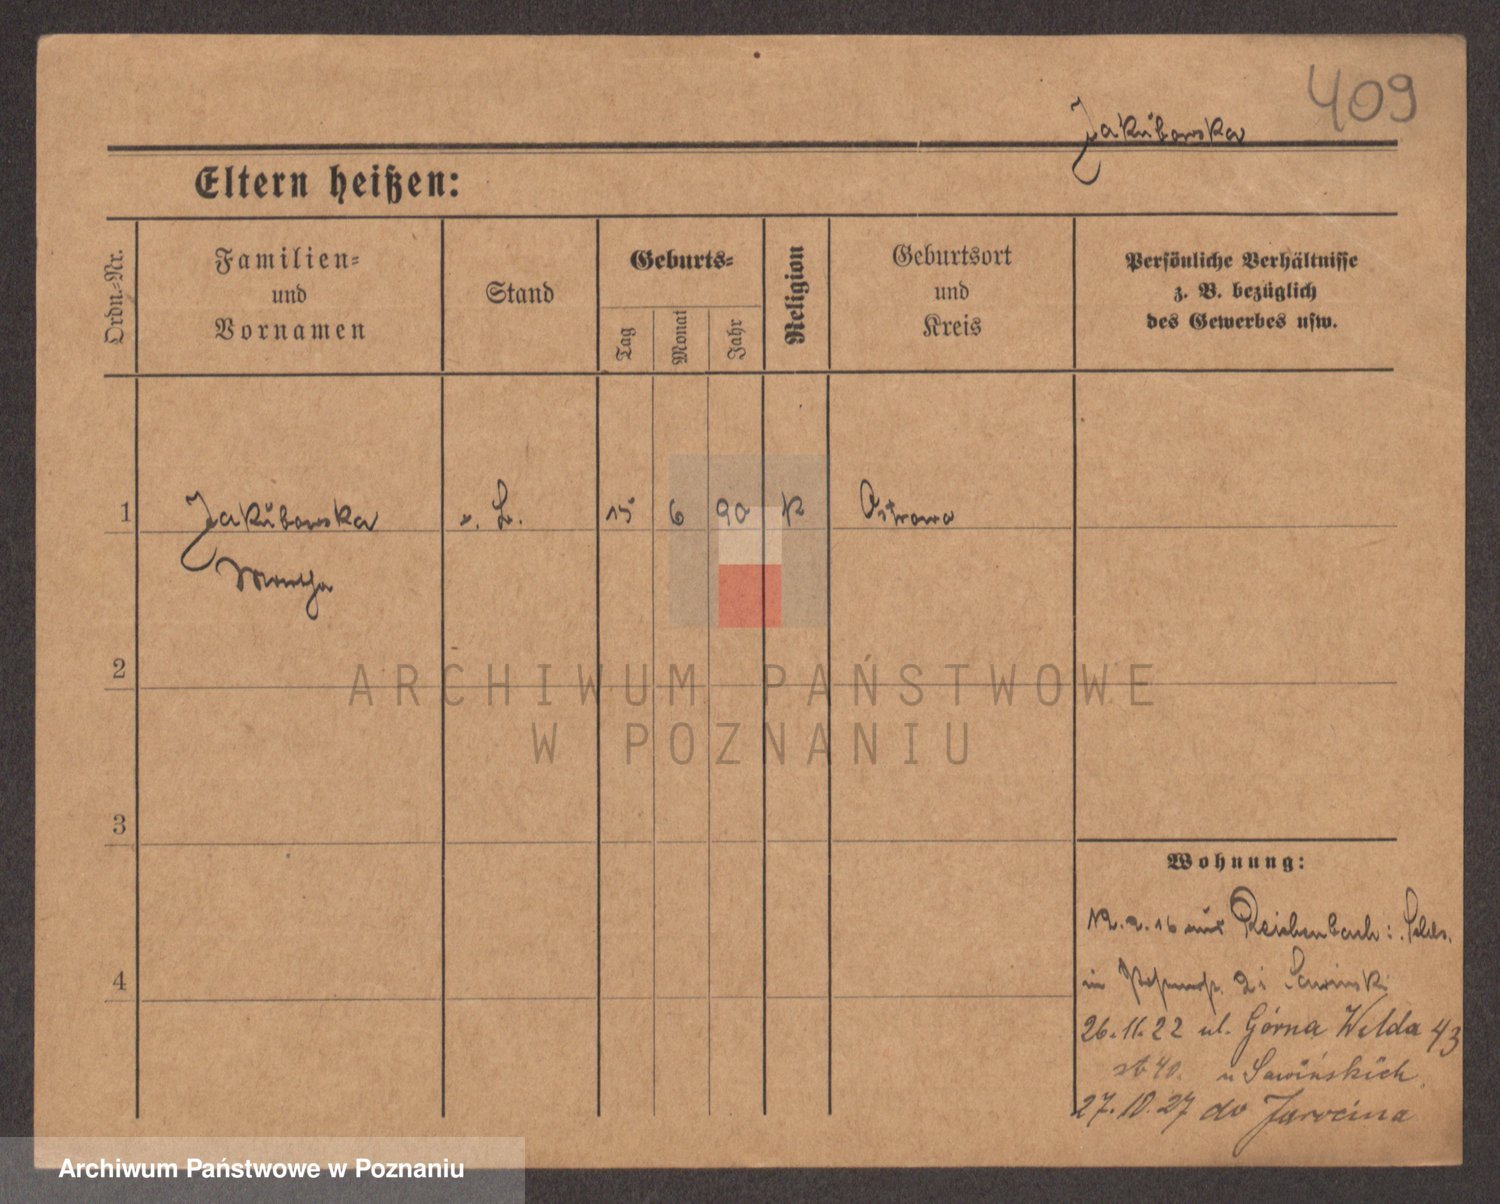 409
Jakubowska
Eltern heißen:
Ordn.-Nr.
Familien-
und
Vornamen
Stand
Geburts-
Tag
Monat
Jahr
Religion
Geburtsort
und
Kreis
Persönliche Verhältnisse
z. B. bezüglich
des Gewerbes usw.
1
Jakubowska
Martha
15
6
90
K
Ostrowo
2
ARCHIWUM PAŃSTWOWE
W POZNANIU
3
Wohnung:
4
12.2.16 aus Reichenbach i. Schles.
in 2 i Sawinski
26.11.22 ul. Górna Wilda 43
u Sawińskich
27.10.27 do Jarocina
Archiwum Państwowe w Poznaniu